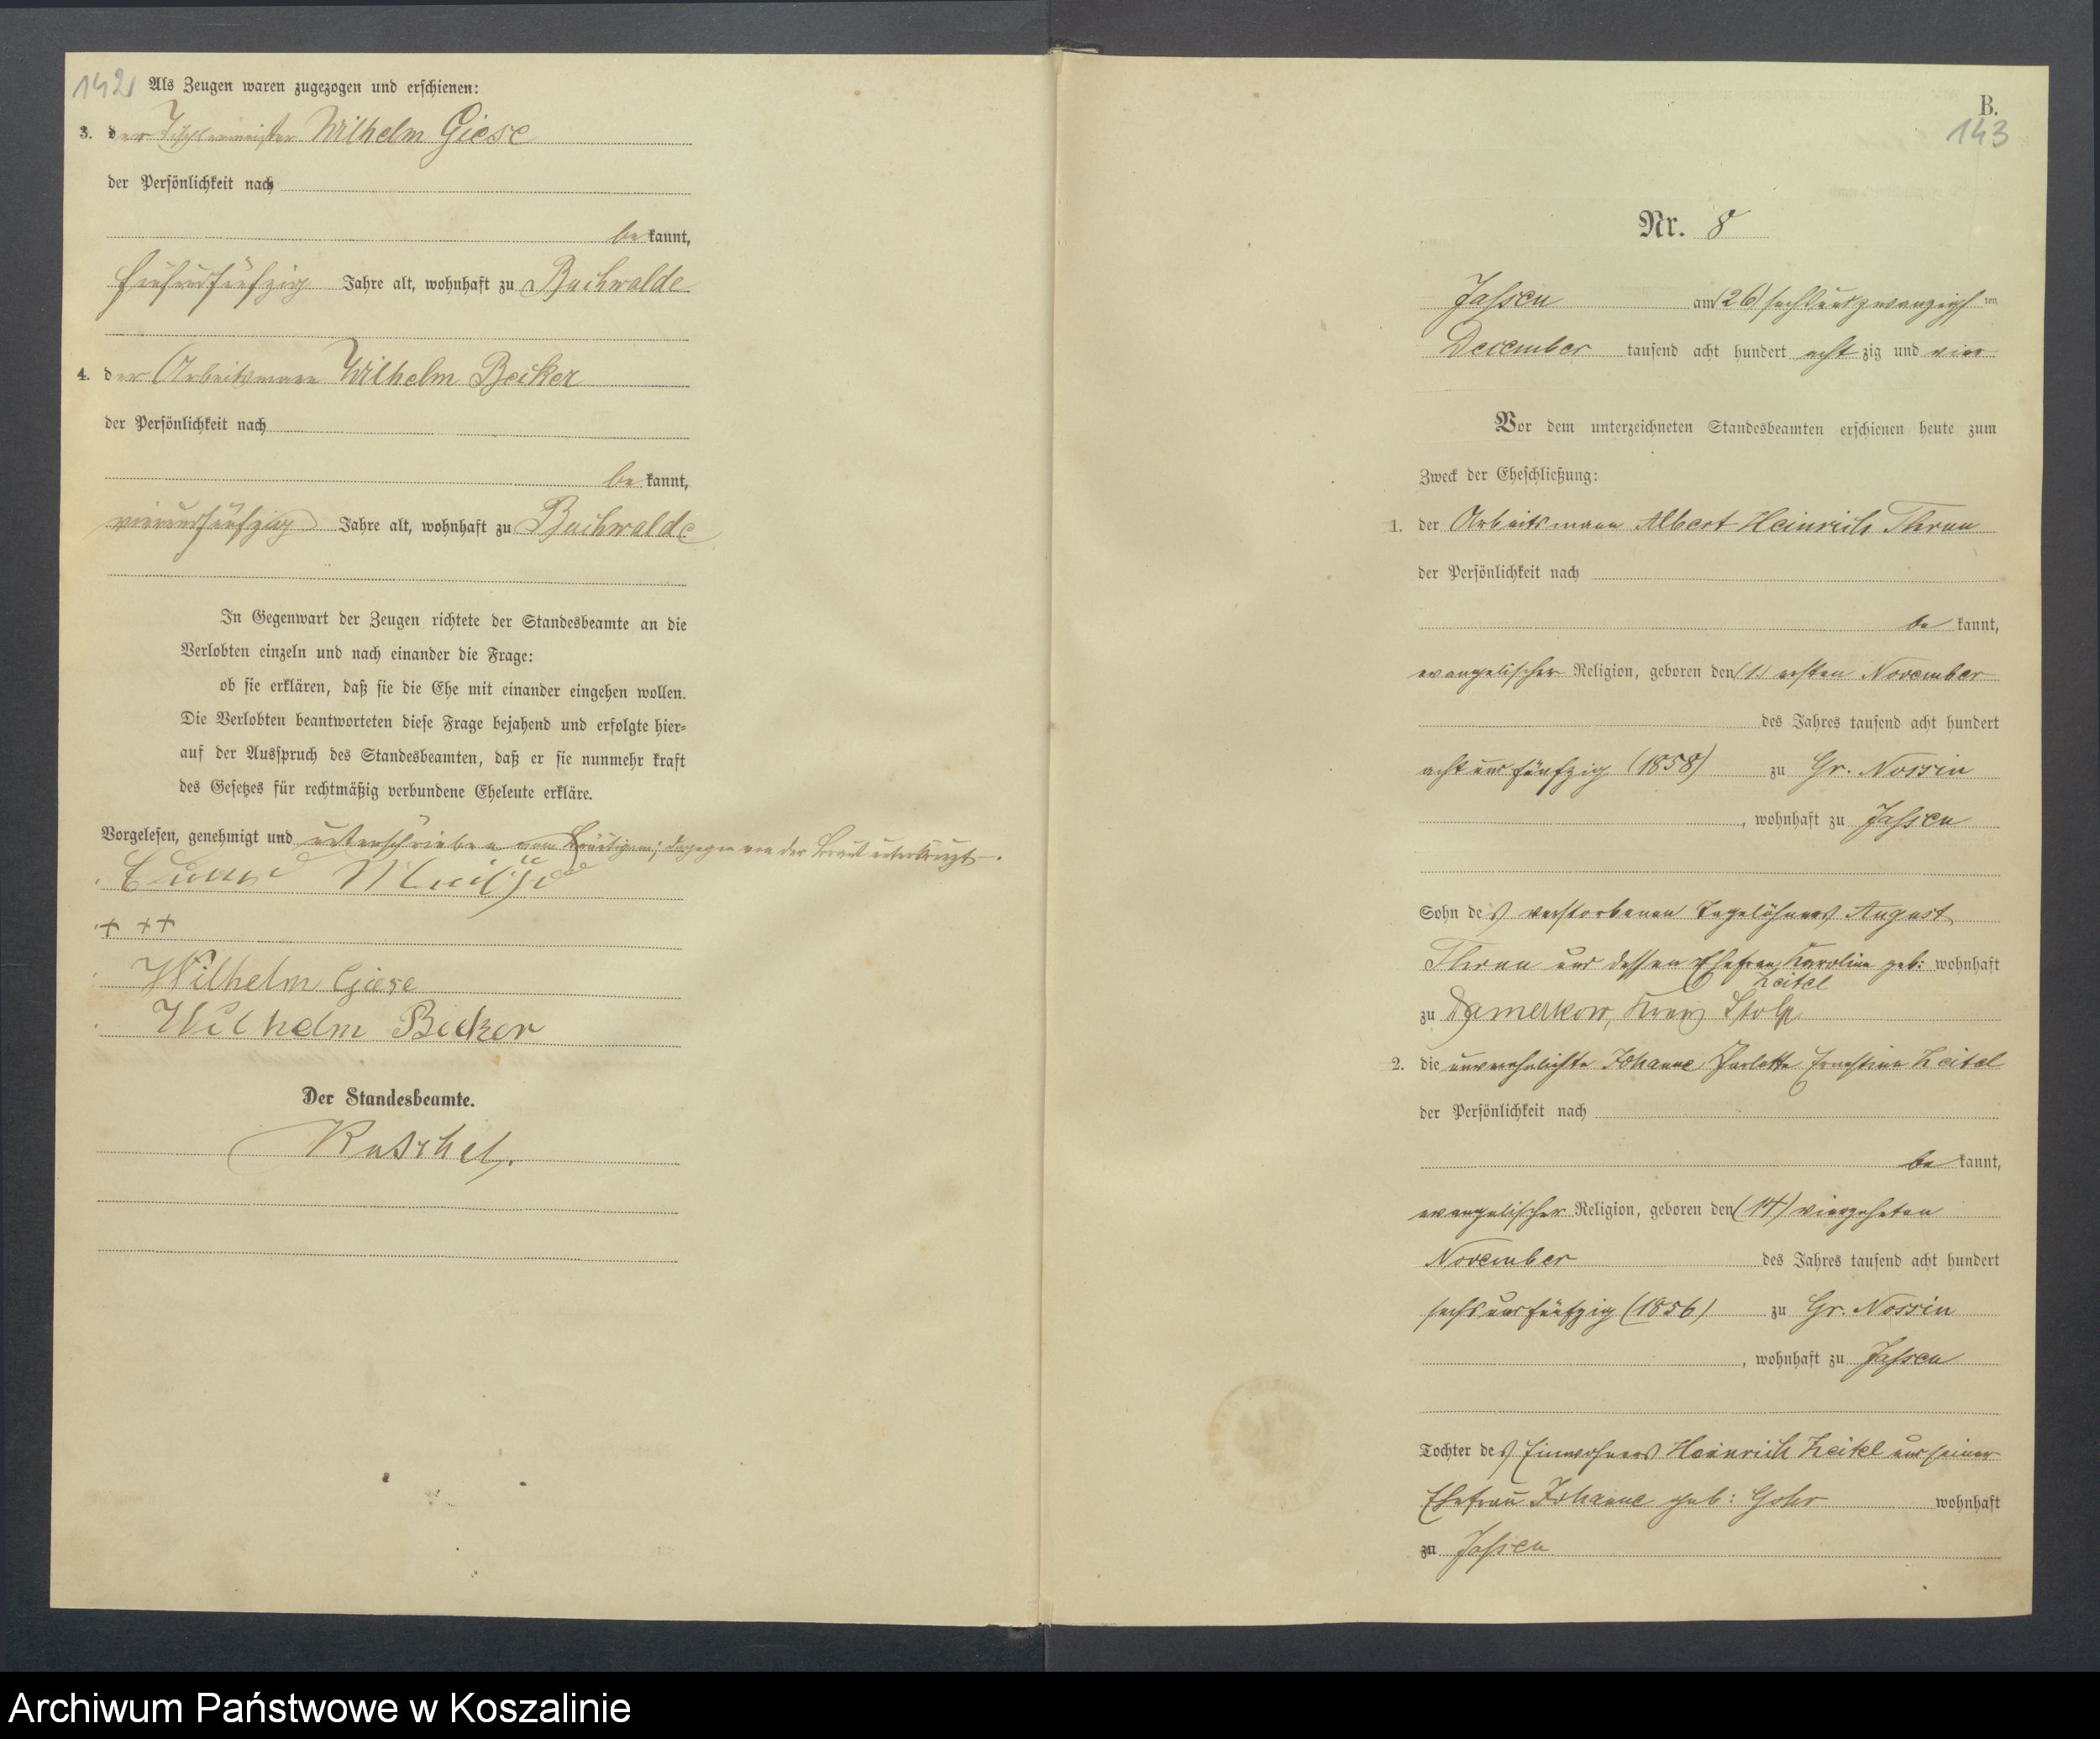 142
Als Zeugen waren zugezogen und erschienen:
3. der Tischlermeister Wilhelm Giese
der Persönlichkeit nach
be kannt,
fünfundfünfzig Jahre alt, wohnhaft zu Buchwalde
4. der Arbeitsmann Wilhelm Becker
der Persönlichkeit nach
be kannt,
vierundfünfzig Jahre alt, wohnhaft zu Buchwalde
In Gegenwart der Zeugen richtete der Standesbeamte an die
Verlobten einzeln und nach einander die Frage:
ob sie erklären, daß sie die Ehe mit einander eingehen wollen.
Die Verlobten beantworteten diese Frage bejahend und erfolgte hier-
auf der Ausspruch des Standesbeamten, daß er sie nunmehr kraft
des Gesetzes für rechtmäßig verbundene Eheleute erkläre.
Vorgelesen, genehmigt und unterschrieben vom Bräutigam; dagegen von der Braut unterkreuzt.
+ ++
Wilhelm Giese
Wilhelm Becker
Der Standesbeamte.
B.
143
Nr. 8
Jassen am (26) sechsundzwanzigs ten
December tausend acht hundert acht zig und vier
Vor dem unterzeichneten Standesbeamten erschienen heute zum
Zweck der Eheschließung:
1. der Arbeitsmann Albert Heinrich Thrun
der Persönlichkeit nach
be kannt,
evangelischer Religion, geboren den (1.) ersten November
des Jahres tausend acht hundert
acht und fünfzig (1858) zu Gr. Nossin
, wohnhaft zu Jassen
Sohn des verstorbenen Tagelöhners August
Thrun und dessen Ehefrau Karoline geb: wohnhaft
Zeitel
zu Damerkow, Kreis Stolp
2. die unverehelichte Johanne Charlotte Ernestine Zeitel
der Persönlichkeit nach
be kannt,
evangelischer Religion, geboren den (14) vierzehnten
November des Jahres tausend acht hundert
sechs und fünfzig (1856) zu Gr. Nossin
, wohnhaft zu Jassen
Tochter des Einwohners Heinrich Zeitel und seiner
Ehefrau Johanne geb: Gohr wohnhaft
zu Jassen
Archiwum Państwowe w Koszalinie